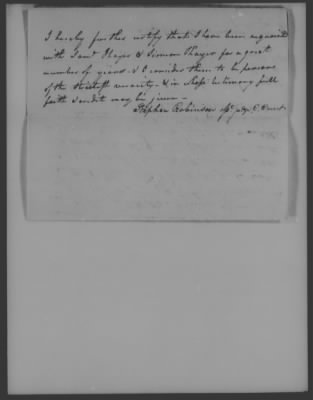 I hereby further notify that I have been acquainted
with Saml Thayer & Simeon Thayer for a great
number of years - & consider them to be persons
of the strictest veracity - & in whose testimony full
faith & credit may be given -
Stephen Robinson